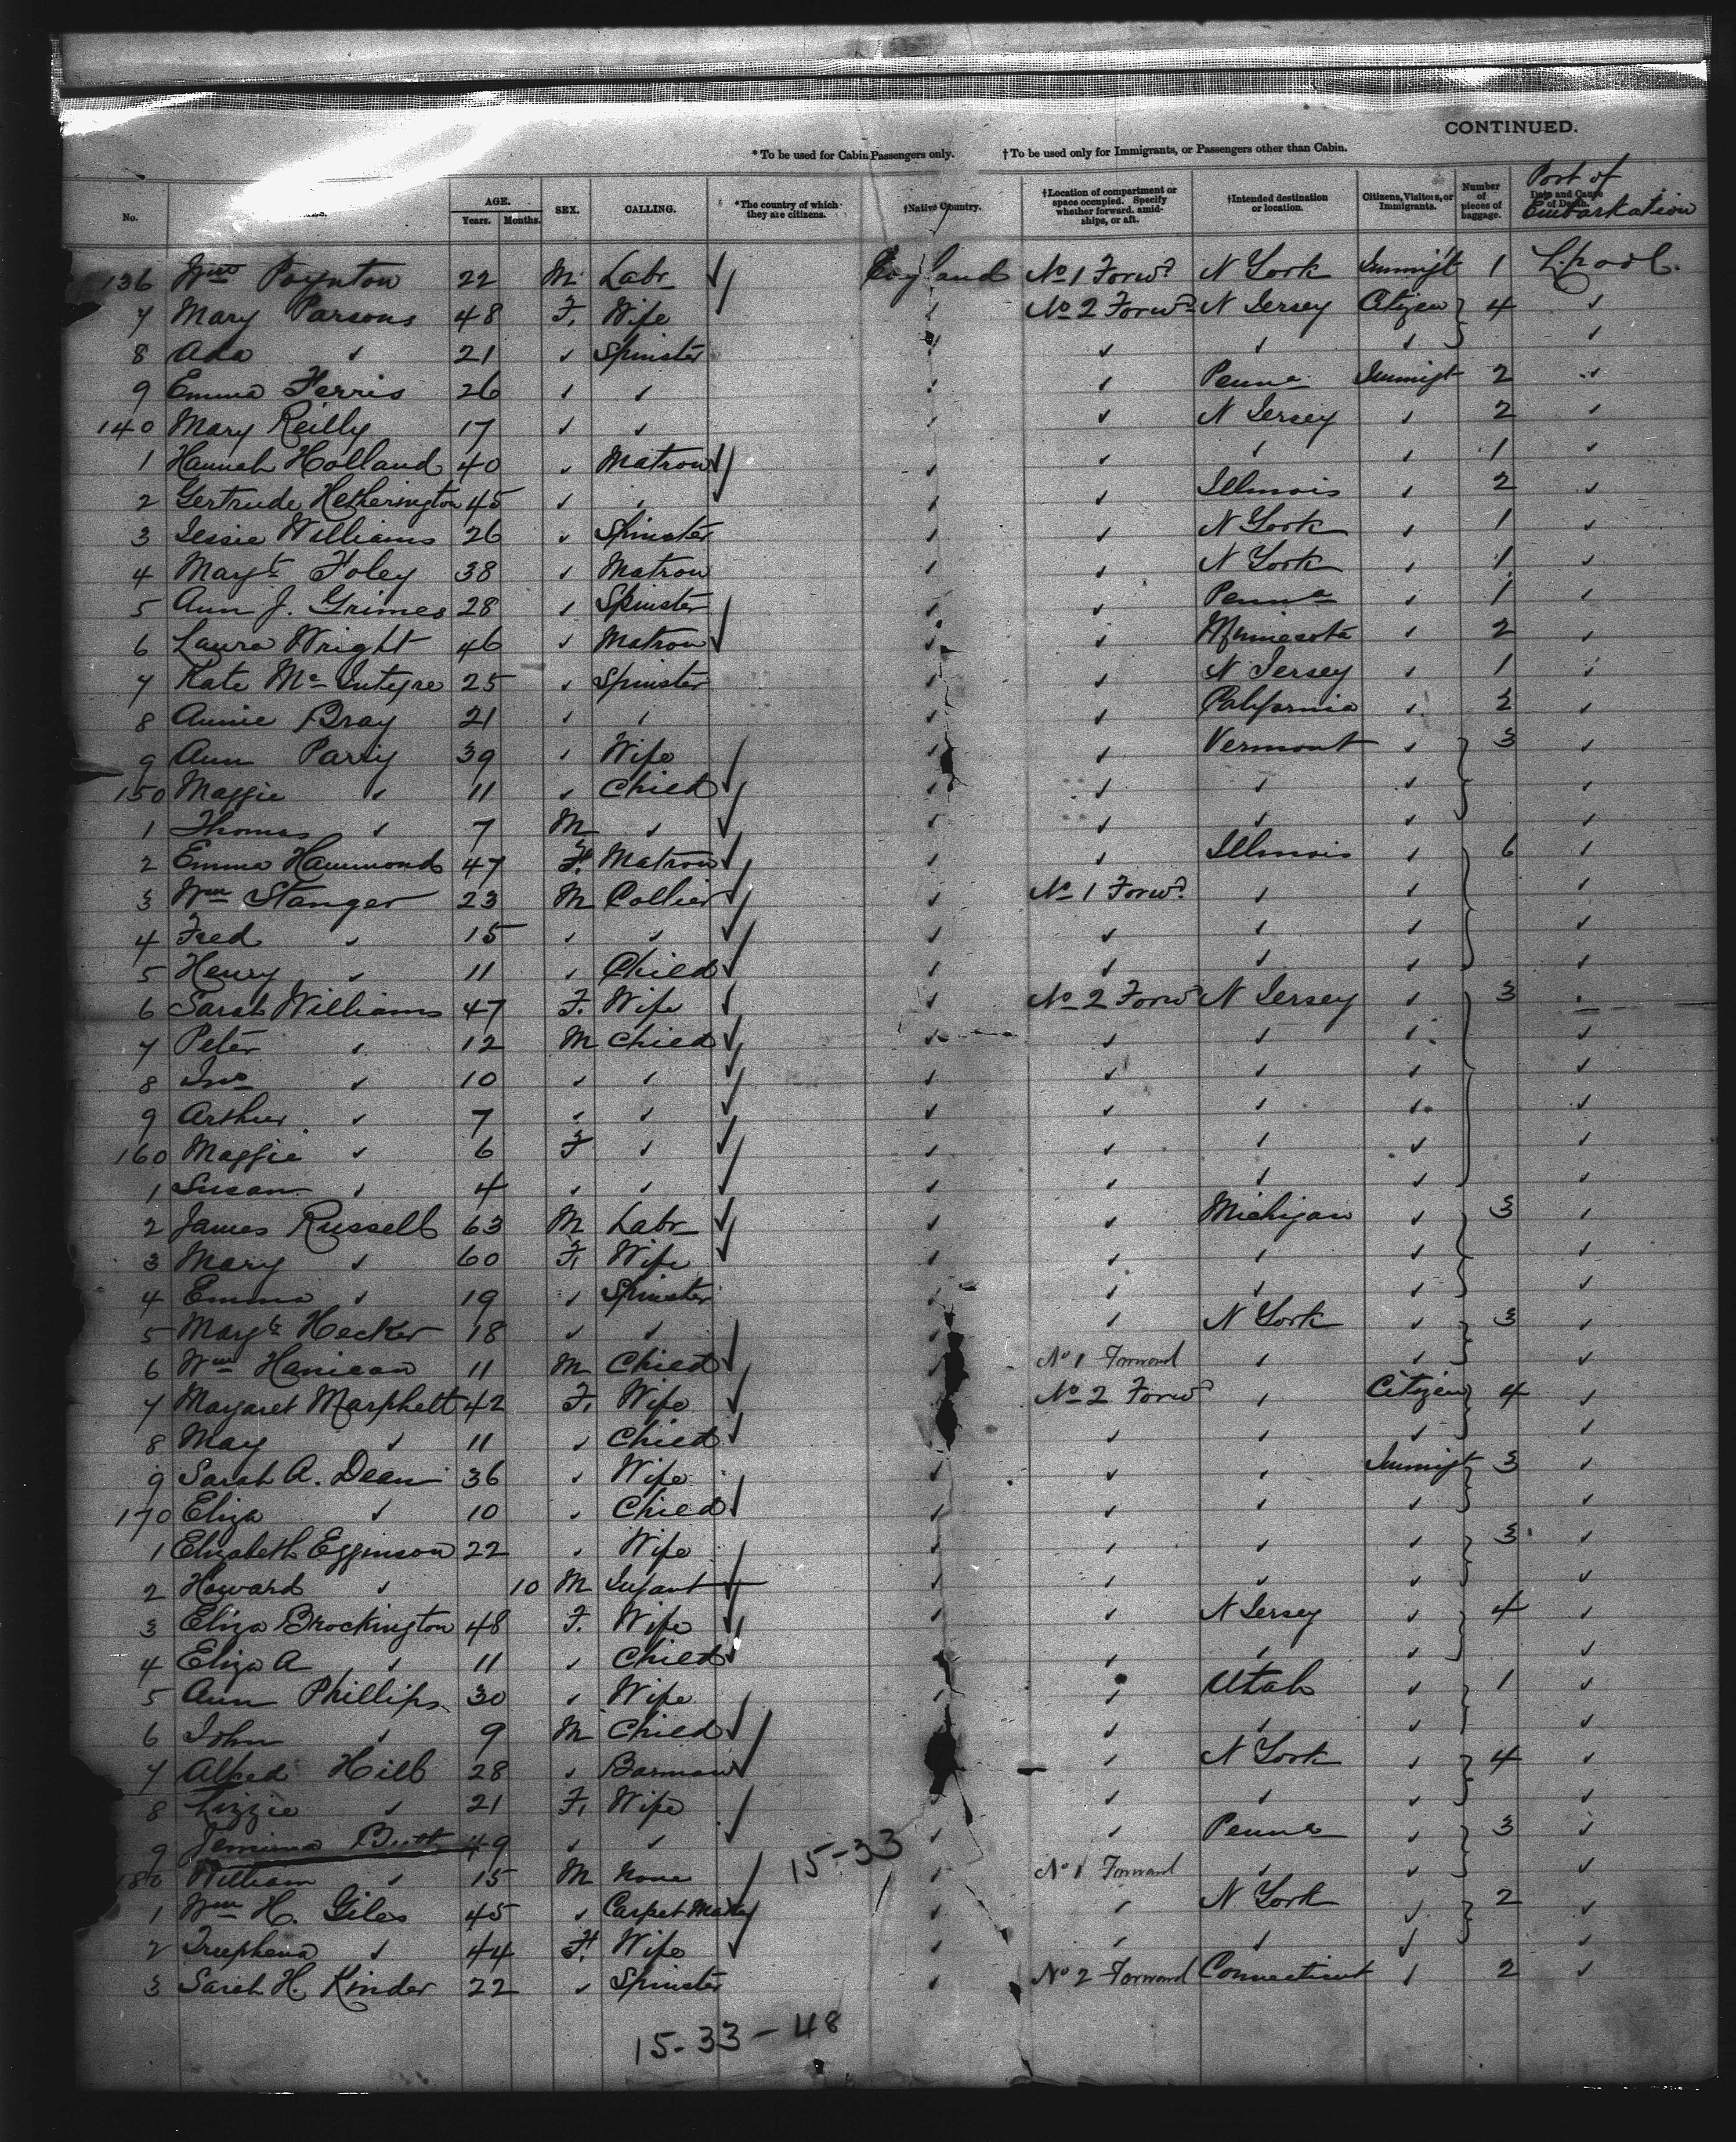 CONTINUED.
* To be used for Cabin Passengers only. † To be used only for Immigrants, or Passengers other than Cabin.
No. AGE. Years. Months. SEX. CALLING. *The country of which they are citizens. †Native Country. †Location of compartment or space occupied. Specify whether forward, amidships, or aft. †Intended destination or location. Citizens, Visitors, or Immigrants. Number of pieces of baggage. Date and Cause of Death. Port of Embarkation
136 Wm Poynton 22 M Labr England No 1 Forwd N York Immigt 1 L.pool.
7 Mary Parsons 48 F. Wife ✓ No 2 Forwd N Jersey Citizen 4 ✓
8 Ada ✓ 21 ✓ Spinster ✓ ✓ ✓ ✓ ✓
9 Emma Ferris 26 ✓ ✓ ✓ ✓ Penna Immigt 2 ✓
140 Mary Reilly 17 ✓ ✓ ✓ ✓ N Jersey ✓ 2 ✓
1 Hannah Holland 40 ✓ Matron ✓ ✓ ✓ ✓ 1 ✓
2 Gertrude Hetherington 45 ✓ ✓ ✓ ✓ Illinois ✓ 2 ✓
3 Jessie Williams 26 ✓ Spinster ✓ ✓ N York ✓ 1 ✓
4 Margt Foley 38 ✓ Matron ✓ ✓ N York ✓ 1 ✓
5 Ann J. Grimes 28 ✓ Spinster ✓ ✓ Penna ✓ 1 ✓
6 Laura Wright 46 ✓ Matron ✓ ✓ Minnesota ✓ 2 ✓
7 Kate Mc Intyre 25 ✓ Spinster ✓ ✓ N Jersey ✓ 1 ✓
8 Annie Bray 21 ✓ ✓ ✓ ✓ California ✓ 2 ✓
9 Ann Parry 39 ✓ Wife ✓ ✓ Vermont ✓ 3 ✓
150 Maggie ✓ 11 ✓ Child ✓ ✓ ✓ ✓ ✓
1 Thomas ✓ 7 M ✓ ✓ ✓ ✓ ✓ ✓
2 Emma Hammond 47 F. Matron ✓ ✓ Illinois ✓ 6 ✓
3 Wm Stanger 23 M Collier ✓ No 1 Forwd ✓ ✓ ✓
4 Fred ✓ 15 ✓ ✓ ✓ ✓ ✓ ✓ ✓
5 Henry ✓ 11 ✓ Child ✓ ✓ ✓ ✓ ✓
6 Sarah Williams 47 F. Wife ✓ No 2 Forwd N Jersey ✓ 3 ✓
7 Peter ✓ 12 M Child ✓ ✓ ✓ ✓ ✓
8 Jno ✓ 10 ✓ ✓ ✓ ✓ ✓ ✓ ✓
9 Arthur ✓ 7 ✓ ✓ ✓ ✓ ✓ ✓ ✓
160 Maggie ✓ 6 F ✓ ✓ ✓ ✓ ✓ ✓
1 Susan ✓ 4 ✓ ✓ ✓ ✓ ✓ ✓ ✓
2 James Russell 63 M Labr ✓ ✓ Michigan ✓ 3 ✓
3 Mary ✓ 60 F. Wife ✓ ✓ ✓ ✓ ✓
4 Emma ✓ 19 ✓ Spinster ✓ ✓ ✓ ✓ ✓
5 Margt Hecker 18 ✓ ✓ ✓ ✓ N York ✓ 3 ✓
6 Wm Hanican 11 M Child ✓ No 1 Forward ✓ ✓ ✓
7 Margaret Marphett 42 F. Wife ✓ No 2 Forwd ✓ Citizen 4 ✓
8 May ✓ 11 ✓ Child ✓ ✓ ✓ ✓ ✓
9 Sarah A. Dean 36 ✓ Wife ✓ ✓ ✓ Immigt 3 ✓
170 Eliza ✓ 10 ✓ Child ✓ ✓ ✓ ✓ ✓
1 Elizabeth Egginson 22 ✓ Wife ✓ ✓ ✓ ✓ 3 ✓
2 Howard ✓ 10 M Infant ✓ ✓ ✓ ✓ ✓
3 Eliza Brockington 48 F. Wife ✓ ✓ N Jersey ✓ 4 ✓
4 Eliza A ✓ 11 ✓ Child ✓ ✓ ✓ ✓ ✓
5 Ann Phillips 30 ✓ Wife ✓ ✓ Utah ✓ 1 ✓
6 John ✓ 9 M Child ✓ ✓ ✓ ✓ ✓
7 Alfred Hill 28 ✓ Barman ✓ ✓ N York ✓ 4 ✓
8 Lizzie ✓ 21 F. Wife ✓ ✓ ✓ ✓ ✓
9 Jemima Butt 49 ✓ ✓ 15-33 ✓ ✓ Penna ✓ 3 ✓
180 William ✓ 15 M None No 1 Forward ✓ ✓ ✓
1 Wm H. Giles 45 ✓ Carpet Maker ✓ ✓ N York ✓ 2 ✓
2 Truphena ✓ 44 F. Wife ✓ ✓ ✓ ✓ ✓
3 Sarah H. Kinder 22 ✓ Spinster ✓ No 2 Forward Connecticut ✓ 2 ✓
15-33-48